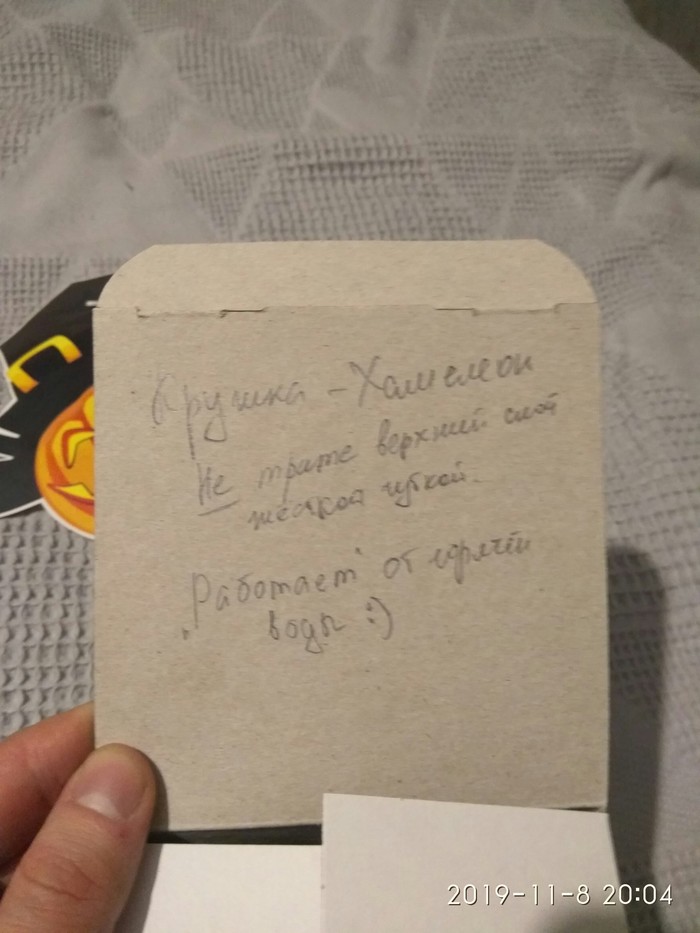 Кружка - Хамелеон
Не трите верхний слой
жесткой губкой.
Работает от горячей
воды :)
2019-11-8 20:04